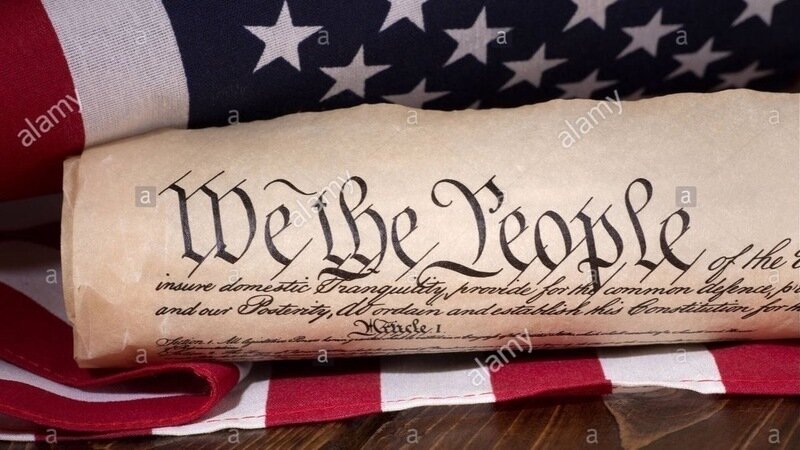 We the People of the
insure domestic Tranquility, provide for the common defence,
and our Posterity, do ordain and establish this Constitution for
Article I
Section 1. All legislative Powers
alamy
alamy
alamy
alamy